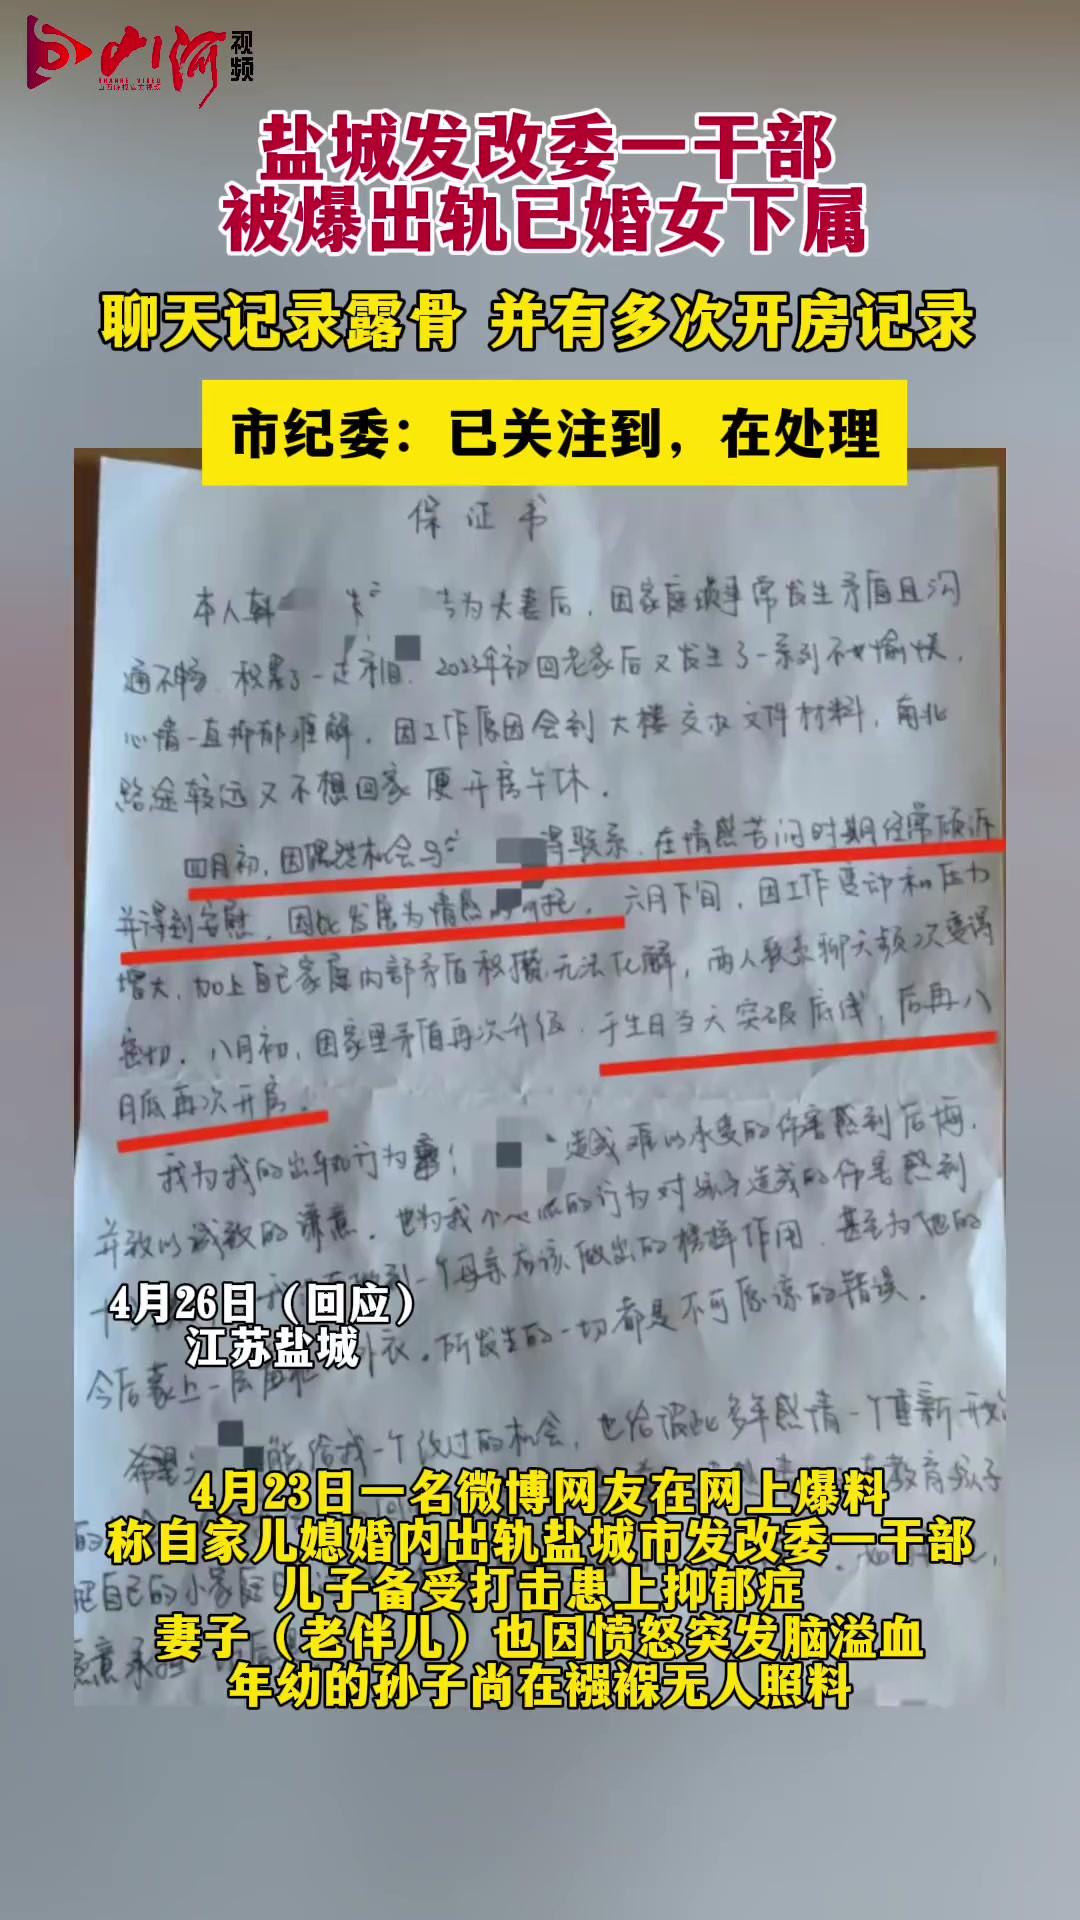 山河视频
SHANHE VIDEO
盐城发改委一干部
被爆出轨已婚女下属
聊天记录露骨 并有多次开房记录
市纪委：已关注到，在处理
保证书
本人韩 为夫妻后，因家庭琐事常发生矛盾且沟
通不畅，积累了一定矛盾。2023年初回老家后又发生了一系列不愉快，
心情一直抑郁难解。因工作原因会到大楼交求文件材料，南北
路途较远又不想回家便开房午休。
四月初，因偶然机会与 得联系，在情感苦闷时期经常倾诉
并得到安慰，因此发展为情感的寄托。六月下旬，因工作变动和压力
增大，加上自己家庭内部矛盾积攒无法化解，两人联系聊天频次变得
密切。八月初，因家里矛盾再次升级，于生日当天突破底线，后再八
月底再次开房。
我为我的出轨行为 ！ 造成难以承受的伤害感到后悔，
并致以诚致的谦意。也为我 的行为对孩子造成的伤害感到
一个母亲应该做出的榜样作用，甚至为他的
今后蒙上一层 外衣。所发生的一切都是不可原谅的错误。
希望 能给我一个改过的机会，也给彼此多年感情一个重新开始
4月26日（回应）
江苏盐城
4月23日一名微博网友在网上爆料
称自家儿媳婚内出轨盐城市发改委一干部
儿子备受打击患上抑郁症
妻子（老伴儿）也因愤怒突发脑溢血
年幼的孙子尚在襁褓无人照料